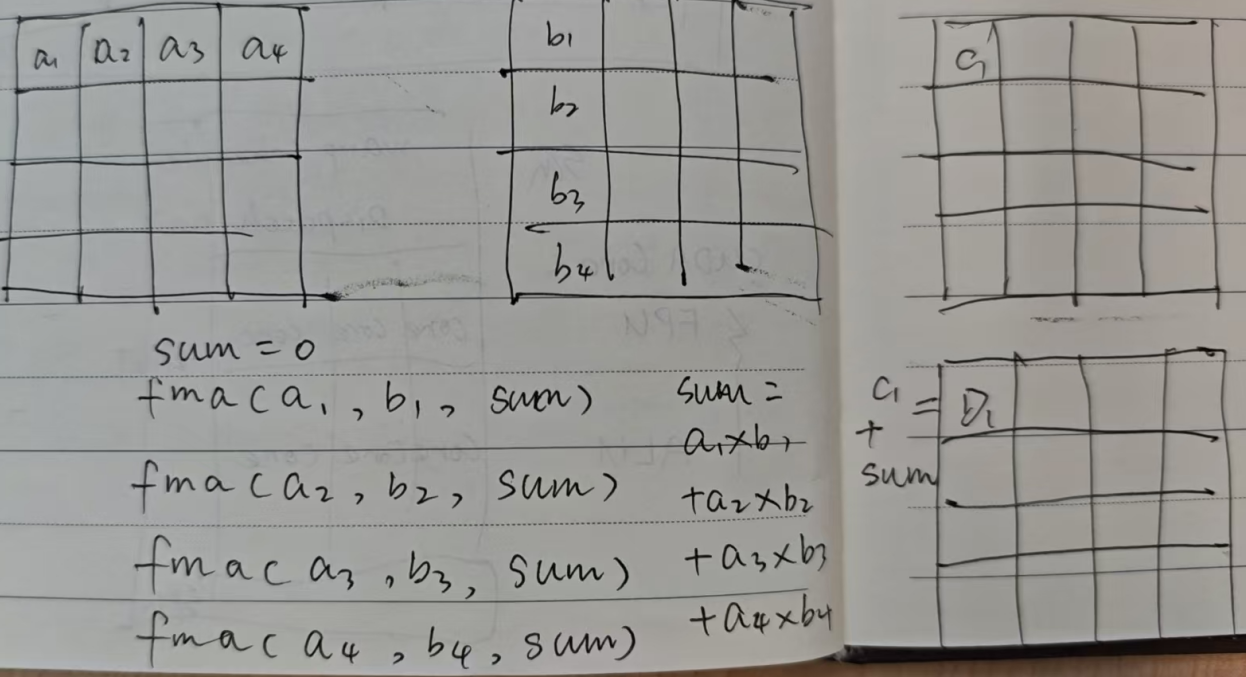 a₁ a₂ a₃ a₄
b₁
b₂
b₃
b₄
C₁
sum = 0
fma(a₁, b₁, sum)
fma(a₂, b₂, sum)
fma(a₃, b₃, sum)
fma(a₄, b₄, sum)
sum =
a₁×b₁
+a₂×b₂
+a₃×b₃
+a₄×b₄
C₁
+
sum
=
D₁